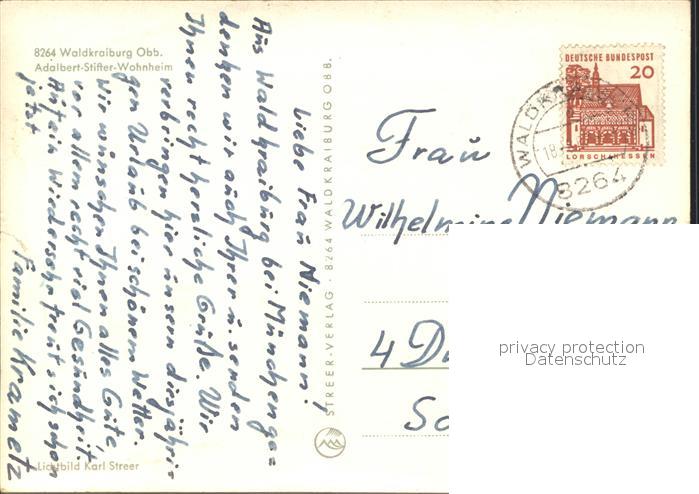 8264 Waldkraiburg Obb.
Adalbert-Stifter-Wohnheim
Liebe Frau Niemann!
Aus Waldkraiburg bei München ge=
denken wir auch Ihrer u. senden
Ihnen recht herzliche Grüße. Wir
verbringen hier unsern diesjähri-
gen Urlaub bei schönem Wetter.
Wir wünschen Ihnen alles Gute,
vor allem recht viel Gesundheit.
Auf ein Wiedersehn freut sich schon
jetzt
Familie Krametz
Lichtbild Karl Streer
STREER-VERLAG · 8264 WALDKRAIBURG OBB.
DEUTSCHE BUNDESPOST
20
LORSCH/HESSEN
WALDKRAIBURG
18.
8264
Frau
Wilhelmine Niemann
4 Du
Sc
privacy protection
Datenschutz